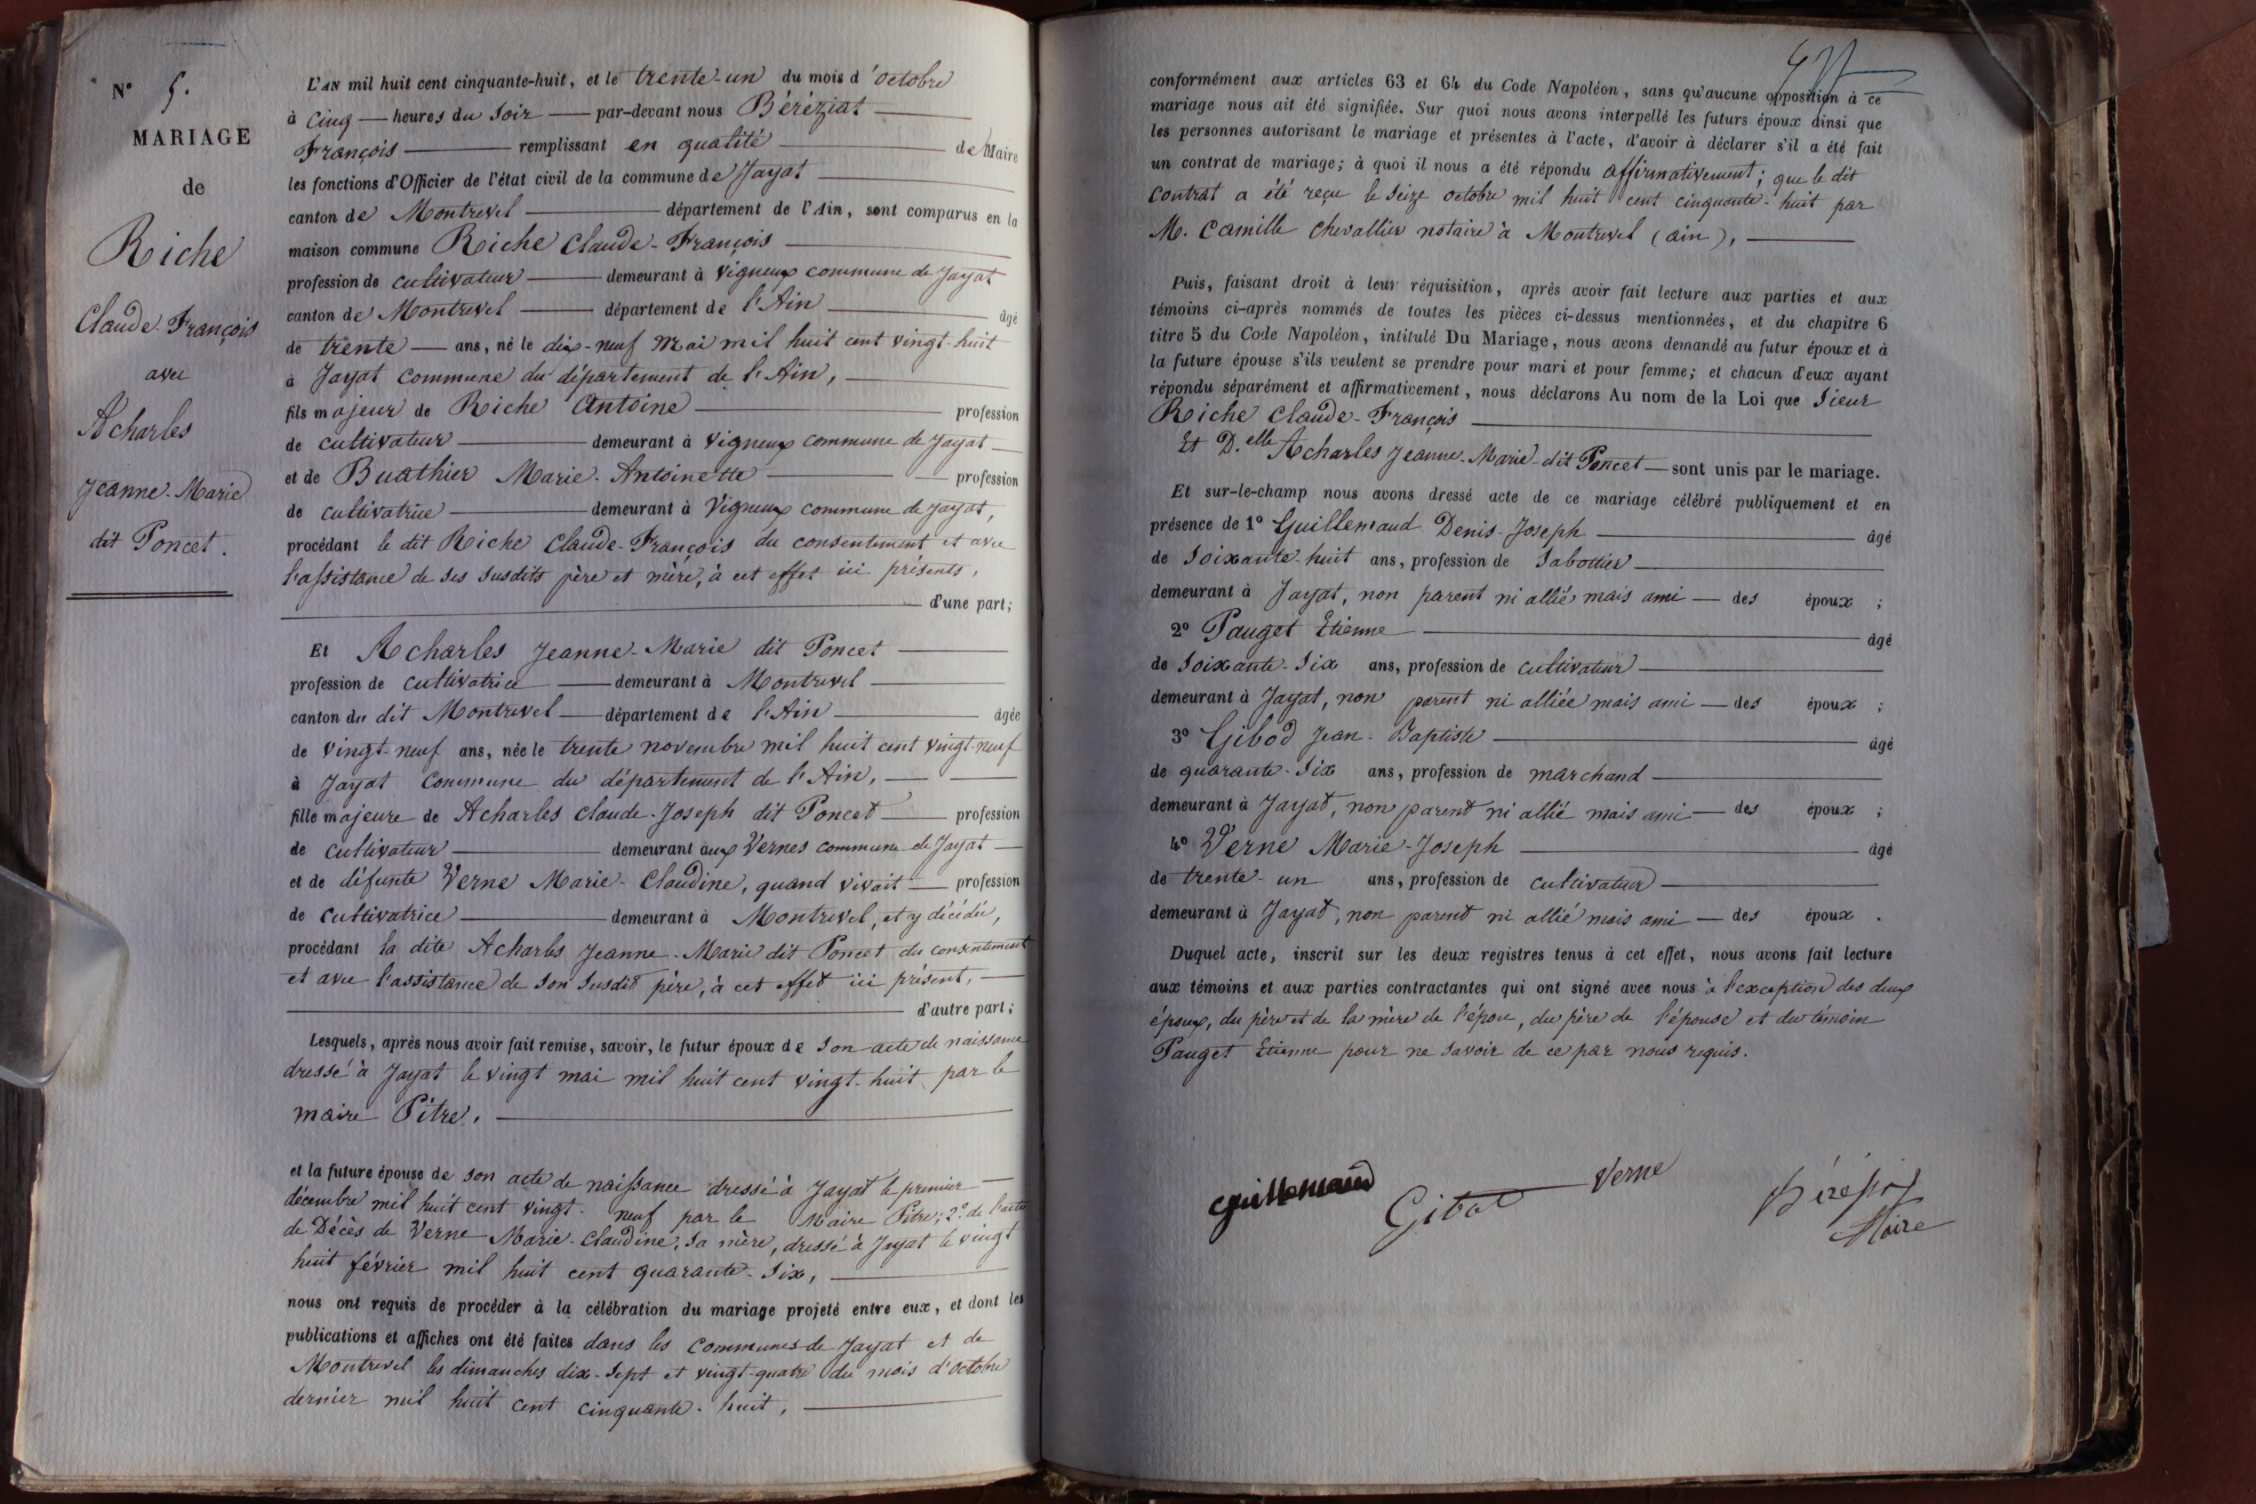 N° 5.
MARIAGE
de
Riche
Claude-François
avec
Acharles
Jeanne-Marie
dit Poncet.
L'AN mil huit cent cinquante-huit, et le trente-un du mois d'octobre
à cinq heures du soir par-devant nous Béréziat
François remplissant en qualité de Maire
les fonctions d'Officier de l'état civil de la commune de Jayat
canton de Montrevel département de l'Ain, sont comparus en la
maison commune Riche Claude-François
profession de cultivateur demeurant à Vigneux commune de Jayat
canton de Montrevel département de l'Ain âgé
de trente ans, né le dix-neuf mai mil huit cent vingt-huit
à Jayat commune du département de l'Ain,
fils majeur de Riche Antoine profession
de cultivateur demeurant à Vigneux commune de Jayat
et de Buathier Marie-Antoinette profession
de cultivatrice demeurant à Vigneux commune de Jayat,
procédant le dit Riche Claude-François du consentement et avec
l'assistance de ses susdits père et mère, à cet effet ici présents,
d'une part;
Et Acharles Jeanne-Marie dit Poncet
profession de cultivatrice demeurant à Montrevel
canton du dit Montrevel département de l'Ain âgée
de vingt-neuf ans, née le trente novembre mil huit cent vingt-neuf
à Jayat commune du département de l'Ain,
fille majeure de Acharles Claude-Joseph dit Poncet profession
de cultivateur demeurant aux Vernes commune de Jayat
et de défunte Verne Marie-Claudine, quand vivait profession
de cultivatrice demeurant à Montrevel, et y décédée,
procédant la dite Acharles Jeanne-Marie dit Poncet du consentement
et avec l'assistance de son susdit père, à cet effet ici présent,
d'autre part;
Lesquels, après nous avoir fait remise, savoir, le futur époux de son acte de naissance
dressé à Jayat le vingt mai mil huit cent vingt-huit par le
maire Pitre.
et la future épouse de son acte de naissance dressé à Jayat le premier
décembre mil huit cent vingt-neuf par le Maire Pitre; 2° de l'acte
de Décès de Verne Marie-Claudine, sa mère, dressé à Jayat le vingt
huit février mil huit cent quarante-six,
nous ont requis de procéder à la célébration du mariage projeté entre eux, et dont les
publications et affiches ont été faites dans les communes de Jayat et de
Montrevel les dimanches dix-sept et vingt-quatre du mois d'octobre
dernier mil huit cent cinquante-huit,
conformément aux articles 63 et 64 du Code Napoléon, sans qu'aucune opposition à ce
mariage nous ait été signifiée. Sur quoi nous avons interpellé les futurs époux ainsi que
les personnes autorisant le mariage et présentes à l'acte, d'avoir à déclarer s'il a été fait
un contrat de mariage; à quoi il nous a été répondu affirmativement; que le dit
contrat a été reçu le seize octobre mil huit cent cinquante-huit par
M. Camille Chevallier notaire à Montrevel (ain),
Puis, faisant droit à leur réquisition, après avoir fait lecture aux parties et aux
témoins ci-après nommés de toutes les pièces ci-dessus mentionnées, et du chapitre 6
titre 5 du Code Napoléon, intitulé Du Mariage, nous avons demandé au futur époux et à
la future épouse s'ils veulent se prendre pour mari et pour femme; et chacun d'eux ayant
répondu séparément et affirmativement, nous déclarons Au nom de la Loi que Sieur
Riche Claude-François
Et D.elle Acharles Jeanne-Marie dit Poncet sont unis par le mariage.
Et sur-le-champ nous avons dressé acte de ce mariage célébré publiquement et en
présence de 1° Guillemaud Denis-Joseph âgé
de soixante-huit ans, profession de sabottier
demeurant à Jayat, non parent ni allié mais ami des époux ;
2° Pauget Etienne âgé
de soixante-six ans, profession de cultivateur
demeurant à Jayat, non parent ni alliée mais ami des époux ;
3° Gibod Jean-Baptiste âgé
de quarante-six ans, profession de marchand
demeurant à Jayat, non parent ni allié mais ami des époux ;
4° Verne Marie-Joseph âgé
de trente-un ans, profession de cultivateur
demeurant à Jayat, non parent ni allié mais ami des époux .
Duquel acte, inscrit sur les deux registres tenus à cet effet, nous avons fait lecture
aux témoins et aux parties contractantes qui ont signé avec nous à l'exception des deux
époux, du père et de la mère de l'époux, du père de l'épouse et du témoin
Pauget Etienne pour ne savoir de ce par nous requis.
Guillemaud
Gibod
Verne
Béréziat
Maire